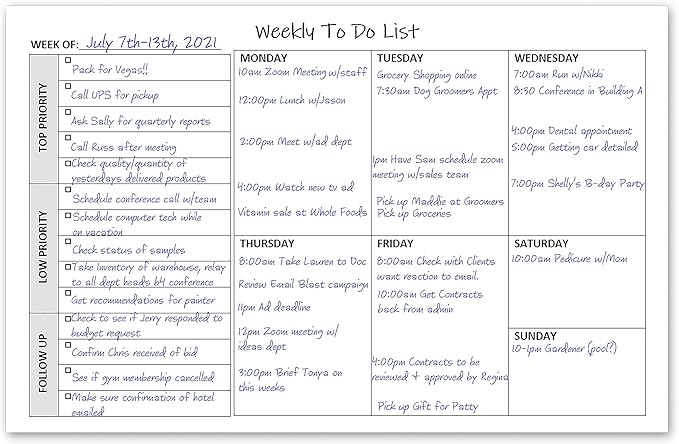 Weekly To Do List
WEEK OF: July 7th-13th, 2021
TOP PRIORITY
Pack for Vegas!!
Call UPS for pickup
Ask Sally for quarterly reports
Call Russ after meeting
Check quality/quantity of
yesterdays delivered products
LOW PRIORITY
Schedule conference call w/team
Schedule computer tech while
on vacation
Check status of samples
Take Inventory of warehouse, relay
to all dept heads b4 conference
Get recommendations for painter
FOLLOW UP
Check to see if Jerry responded to
budget request
Confirm Chris received of bid
See if gym membership cancelled
Make sure confirmation of hotel
emailed
MONDAY
10am Zoom Meeting w/staff
12:00pm Lunch w/Jason
2:00pm Meet w/ad dept
4:00pm Watch new tv ad
Vitamin sale at Whole Foods
TUESDAY
Grocery Shopping online
7:30am Dog Groomers Appt
1pm Have Sam schedule zoom
meeting w/sales team
Pick up Maddie at Groomers
Pick up Groceries
WEDNESDAY
7:00am Run w/Nikki
8:30 Conference in Building A
4:00pm Dental appointment
5:00pm Getting car detailed
7:00pm Shelly's B-day Party
THURSDAY
8:00am Take Lauren to Doc
Review Email Blast campaign
11pm Ad deadline
12pm Zoom meeting w/
ideas dept
3:00pm Brief Tonya on
this weeks
FRIDAY
8:00am Check with Clients
want reaction to email.
10:00am Get Contracts
back from admin
4:00pm Contracts to be
reviewed + approved by Regina
Pick up Gift for Patty
SATURDAY
10:00am Pedicure w/Mom
SUNDAY
10-1pm Gardener (pool?)